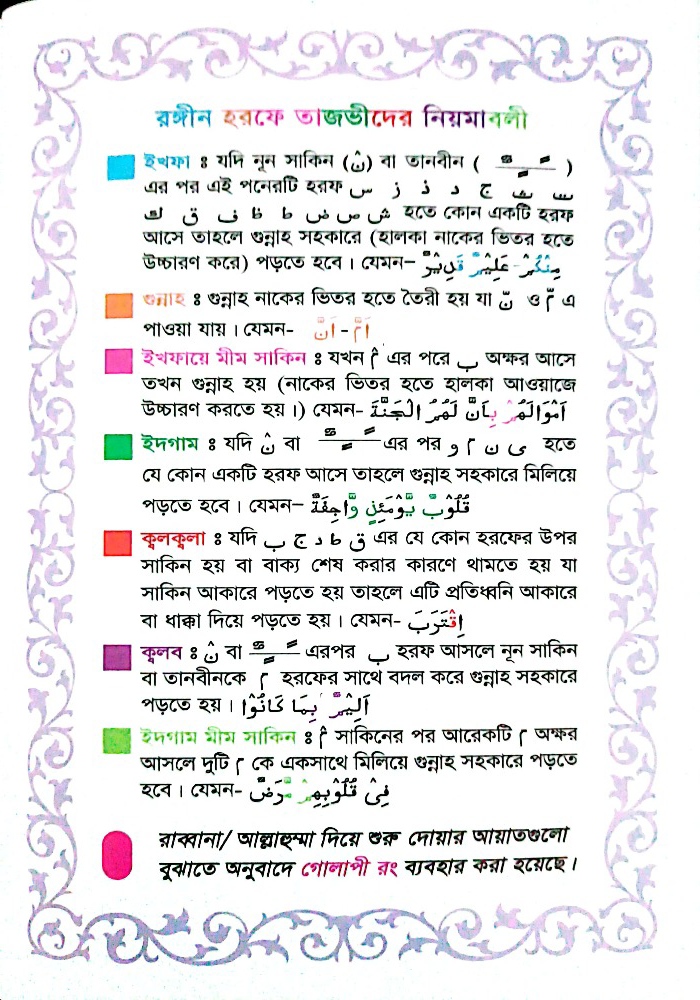 রঙ্গীন হরফে তাজভীদের নিয়মাবলী
ইখফা ঃ যদি নূন সাকিন (نْ) বা তানবীন ( ًٌٍ )
এর পর এই পনেরটি হরফ ت ث ج د ذ ز س
ش ص ض ط ظ ف ق ك হতে কোন একটি হরফ
আসে তাহলে গুন্নাহ সহকারে (হালকা নাকের ভিতর হতে
উচ্চারণ করে) পড়তে হবে। যেমন- مِنْكُمْ - عَلِيْمٌ قَدِيْرٌ
গুন্নাহ ঃ গুন্নাহ নাকের ভিতর হতে তৈরী হয় যা نّ ও مّ এ
পাওয়া যায়। যেমন- اَمَّ - اَنَّ
ইখফায়ে মীম সাকিন ঃ যখন مْ এর পরে ب অক্ষর আসে
তখন গুন্নাহ হয় (নাকের ভিতর হতে হালকা আওয়াজে
উচ্চারণ করতে হয়।) যেমন- اَمْوَالَهُمْ بِاَنَّ لَهُمُ الْجَنَّةَ
ইদগাম ঃ যদি نْ বা ًٌٍ এর পর ى ن م و হতে
যে কোন একটি হরফ আসে তাহলে গুন্নাহ সহকারে মিলিয়ে
পড়তে হবে। যেমন- قُلُوْبٌ يَّوْمَئِذٍ وَّاجِفَةٌ
ক্বলক্বলা ঃ যদি ق ط د ج ب এর যে কোন হরফের উপর
সাকিন হয় বা বাক্য শেষ করার কারণে থামতে হয় যা
সাকিন আকারে পড়তে হয় তাহলে এটি প্রতিধ্বনি আকারে
বা ধাক্কা দিয়ে পড়তে হয়। যেমন- اِقْتَرَبَ
ক্বলব ঃ نْ বা ًٌٍ এরপর ب হরফ আসলে নূন সাকিন
বা তানবীনকে م হরফের সাথে বদল করে গুন্নাহ সহকারে
পড়তে হয়। اَلِيْمٌ بِمَا كَانُوْا
ইদগাম মীম সাকিন ঃ مْ সাকিনের পর আরেকটি م অক্ষর
আসলে দুটি م কে একসাথে মিলিয়ে গুন্নাহ সহকারে পড়তে
হবে। যেমন- فِىْ قُلُوْبِهِمْ مَّرَضٌ
রাব্বানা/ আল্লাহুম্মা দিয়ে শুরু দোয়ার আয়াতগুলো
বুঝাতে অনুবাদে গোলাপী রং ব্যবহার করা হয়েছে।